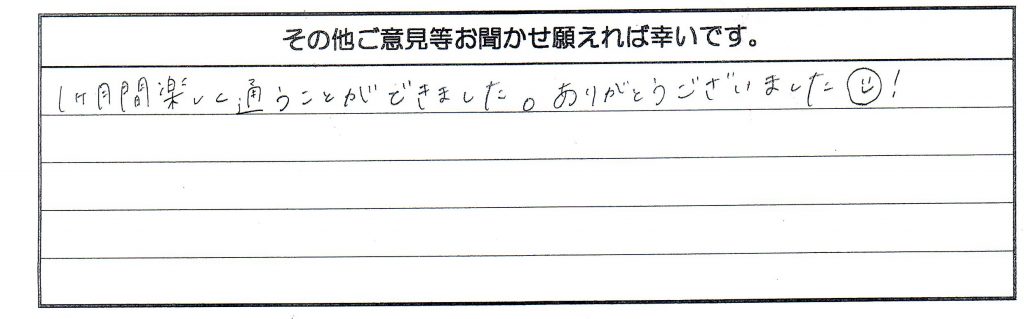 その他ご意見等お聞かせ願えれば幸いです。
1ヶ月間楽しく通うことができました。ありがとうございました☺!